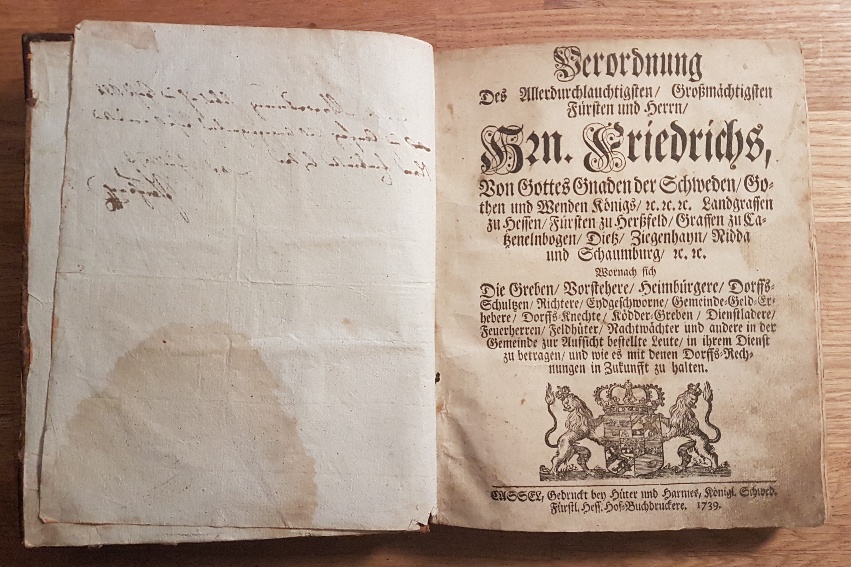 Verordnung
Des Allerdurchlauchtigsten/ Großmächtigsten
Fürsten und Herrn/
Hrn. Friedrichs,
Von Gottes Gnaden der Schweden/ Go-
then und Wenden Königs/ ꝛc. ꝛc. ꝛc. Landgraffen
zu Hessen/ Fürsten zu Herßfeld/ Graffen zu Ca-
tzenelnbogen/ Dietz/ Ziegenhayn/ Nidda
und Schaumburg/ ꝛc. ꝛc.
Wornach sich
Die Greben/ Vorstehere/ Heimbürgere/ Dorffs-
Schultzen/ Richtere/ Eydgeschworne/ Gemeinde-Geld-Er-
hebere/ Dorffs-Knechte/ Ködder-Greben/ Dienstladere/
Feuerherren/ Feldhüter/ Nachtwächter und andere in der
Gemeinde zur Aufsicht bestellte Leute/ in ihrem Dienst
zu betragen/ und wie es mit denen Dorffs-Rech-
nungen in Zukunfft zu halten.
CASSEL, Gedruckt bey Hüter und Harmes, Königl. Schwed.
Fürstl. Hess. Hof-Buchdruckere. 1739.